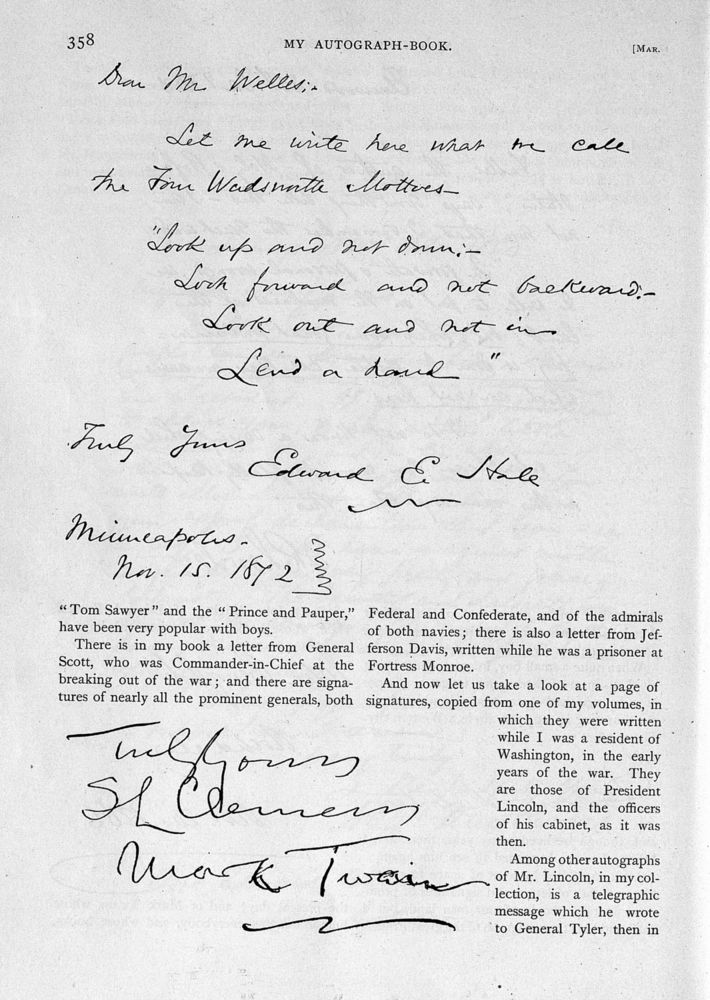 358
MY AUTOGRAPH-BOOK.
[MAR.
Dear Mr Welles:-
Let me write here what we call
the Four Wadsworth Mottoes—
"Look up and not down:—
Look forward and not backward:—
Look out and not in
Lend a hand"
Truly Yours
Edward E. Hale
Minneapolis.
Nov. 15. 1872
"Tom Sawyer" and the "Prince and Pauper,"
have been very popular with boys.
There is in my book a letter from General
Scott, who was Commander-in-Chief at the
breaking out of the war; and there are signa-
tures of nearly all the prominent generals, both
Federal and Confederate, and of the admirals
of both navies; there is also a letter from Jef-
ferson Davis, written while he was a prisoner at
Fortress Monroe.
And now let us take a look at a page of
signatures, copied from one of my volumes, in
which they were written
while I was a resident of
Washington, in the early
years of the war. They
are those of President
Lincoln, and the officers
of his cabinet, as it was
then.
Among other autographs
of Mr. Lincoln, in my col-
lection, is a telegraphic
message which he wrote
to General Tyler, then in
Truly Yours
SL Clemens
Mark Twain